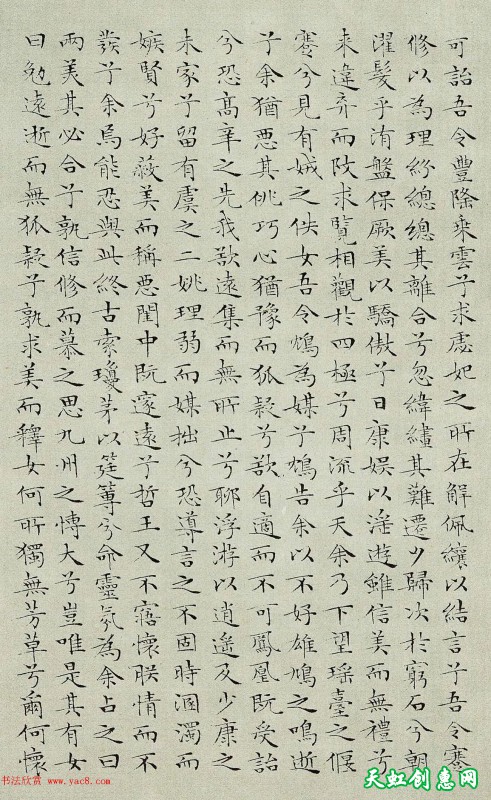 可詒吾令豐隆乘雲兮求虙妃之所在解佩纕以結言兮吾令蹇
修以為理紛總總其離合兮忽緯繣其難遷夕歸次於窮石兮朝
濯髮乎洧盤保厥美以驕傲兮日康娛以淫遊雖信美而無禮兮
来違弃而改求覽相觀於四極兮周流乎天余乃下望瑤臺之偃
蹇兮見有娀之佚女吾令鴆為媒兮鴆告余以不好雄鳩之鳴逝
兮余猶惡其佻巧心猶豫而狐疑兮欲自適而不可鳳凰既受詒
兮恐高辛之先我欲遠集而無所止兮聊浮游以逍遙及少康之
未家兮留有虞之二姚理弱而媒拙兮恐導言之不固時溷濁而
嫉賢兮好蔽美而稱惡閨中既邃遠兮哲王又不寤懷朕情而不
發兮余焉能忍與此終古索瓊茅以筳篿兮命靈氛為余占之曰
兩美其必合兮孰信修而慕之思九州之博大兮豈唯是其有女
曰勉遠逝而無狐疑兮孰求美而釋女何所獨無芳草兮爾何懷
书法欣赏 www.yac8.com
天虹创惠网